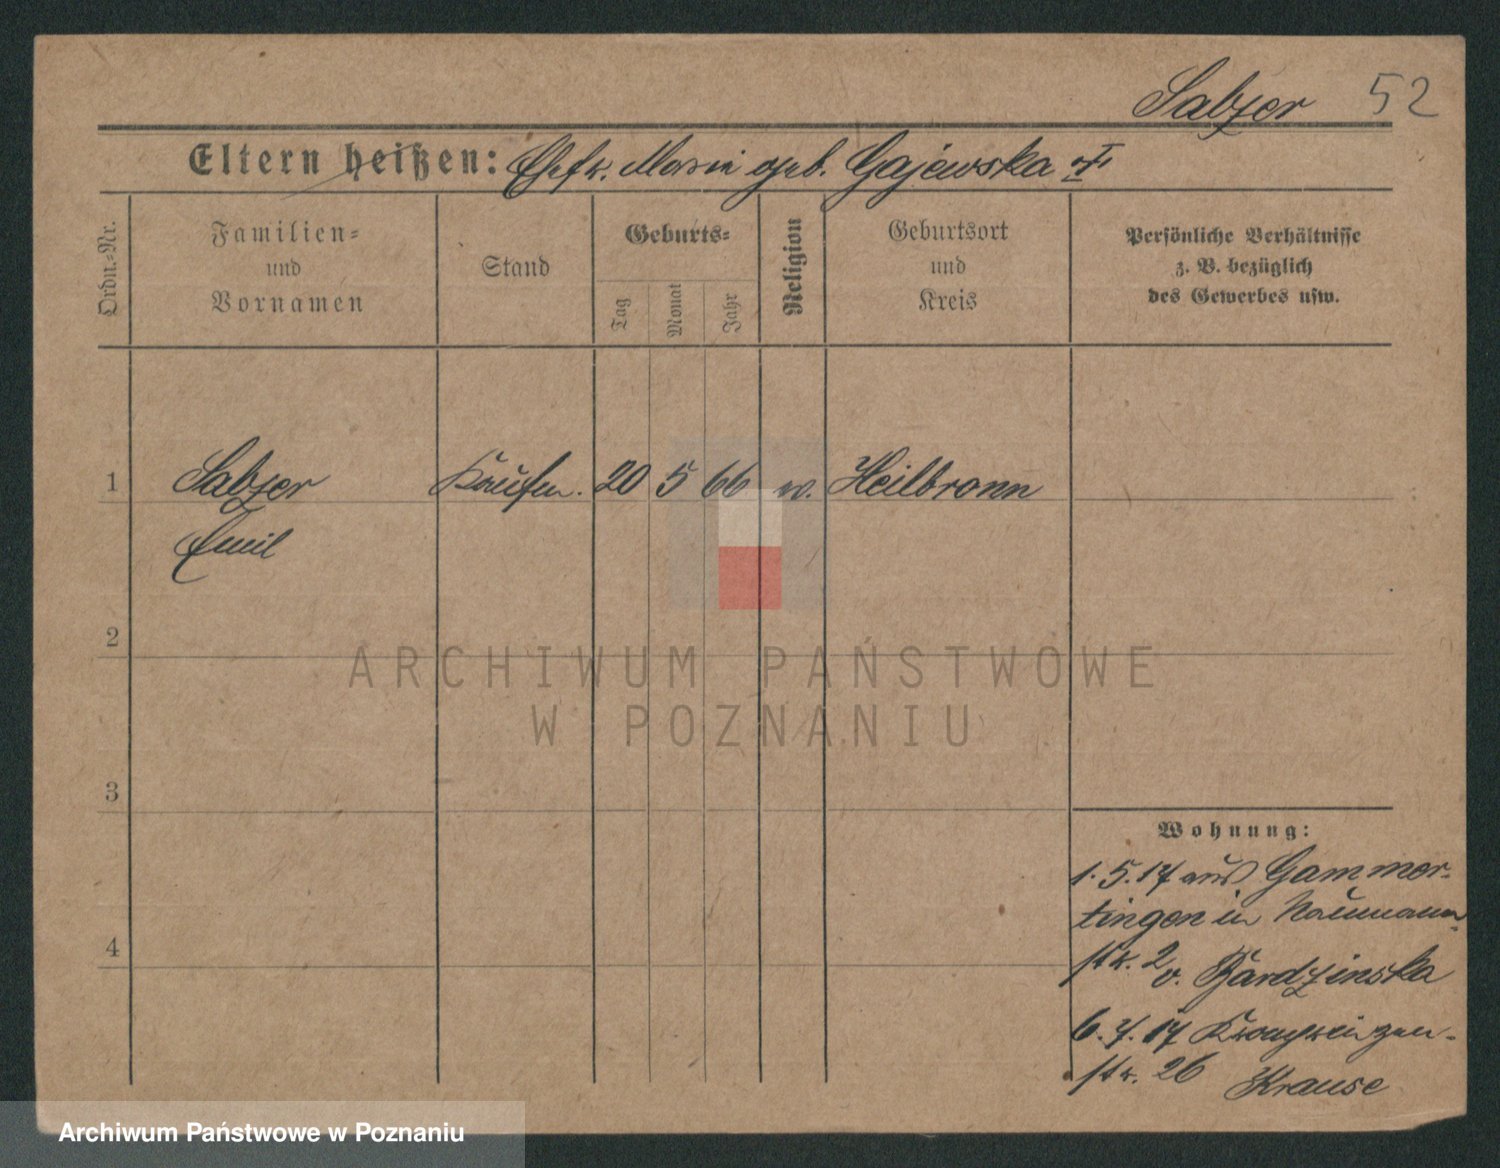 Salzer 52
Eltern heißen: Ehefr. Marie geb. Gajewska †
Ordn.-Nr.
Familien-
und
Vornamen
Stand
Geburts-
Tag
Monat
Jahr
Religion
Geburtsort
und
Kreis
Persönliche Verhältnisse
z. B. bezüglich
des Gewerbes usw.
1 Salzer Kaufm. 20 5 66 ev. Heilbronn
Emil
2
3
4
Wohnung:
1.5.17 aus Gammer-
tingen in Naumann-
str. 2 v. Bardzinska
6.7.17 Kronprinzen-
str. 26 Krause
ARCHIWUM PAŃSTWOWE
W POZNANIU
Archiwum Państwowe w Poznaniu